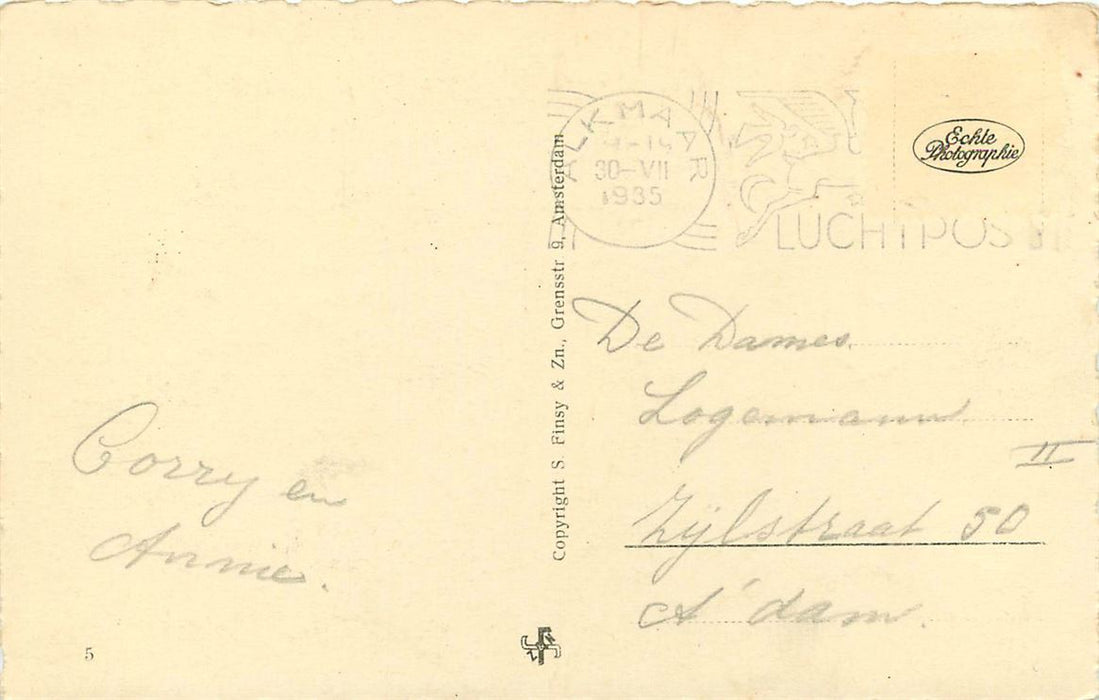 ALKMAAR
30-VII
1935
LUCHTPOST
Echte
Photographie
Copyright S. Finsy & Zn., Grensstr 9, Amsterdam
De Dames
Logemann
Zijlstraat 50 II
A'dam.
Corry en
Annie.
5